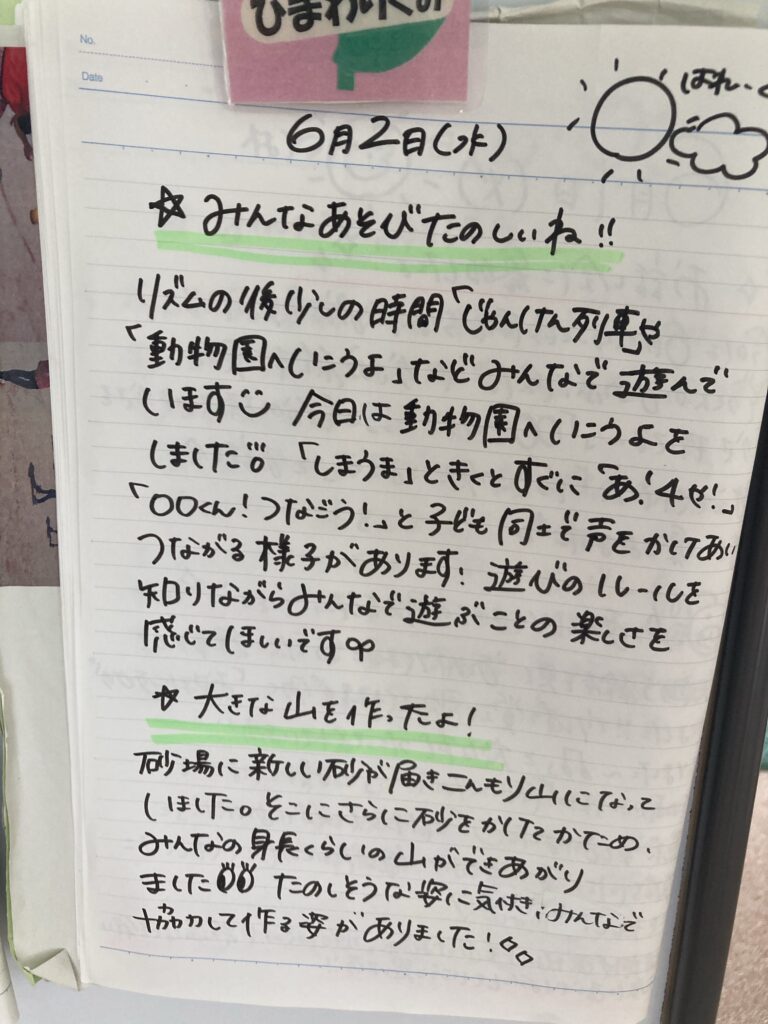 ひまわりぐみ
No.
Date
はれ
6月2日(水)
☆ みんなあそびたのしいね!!
リズムの後少しの時間「じゃんけん列車」や
「動物園へいこうよ」などみんなで遊んで
います 今日は動物園へいこうよを
しました 「しまうま」ときくとすぐに「あ!4せ!」
「〇〇くん!つなごう!」と子ども同士で声をかけあい
つながる様子があります! 遊びのルールを
知りながらみんなで遊ぶことの楽しさを
感じてほしいです
☆ 大きな山を作ったよ!
砂場に新しい砂が届きこんもり山になって
いました。そこにさらに砂をかけてかため、
みんなの身長くらいの山ができあがり
ました たのしそうな姿に気付き、みんなで
協力して作る姿がありました!